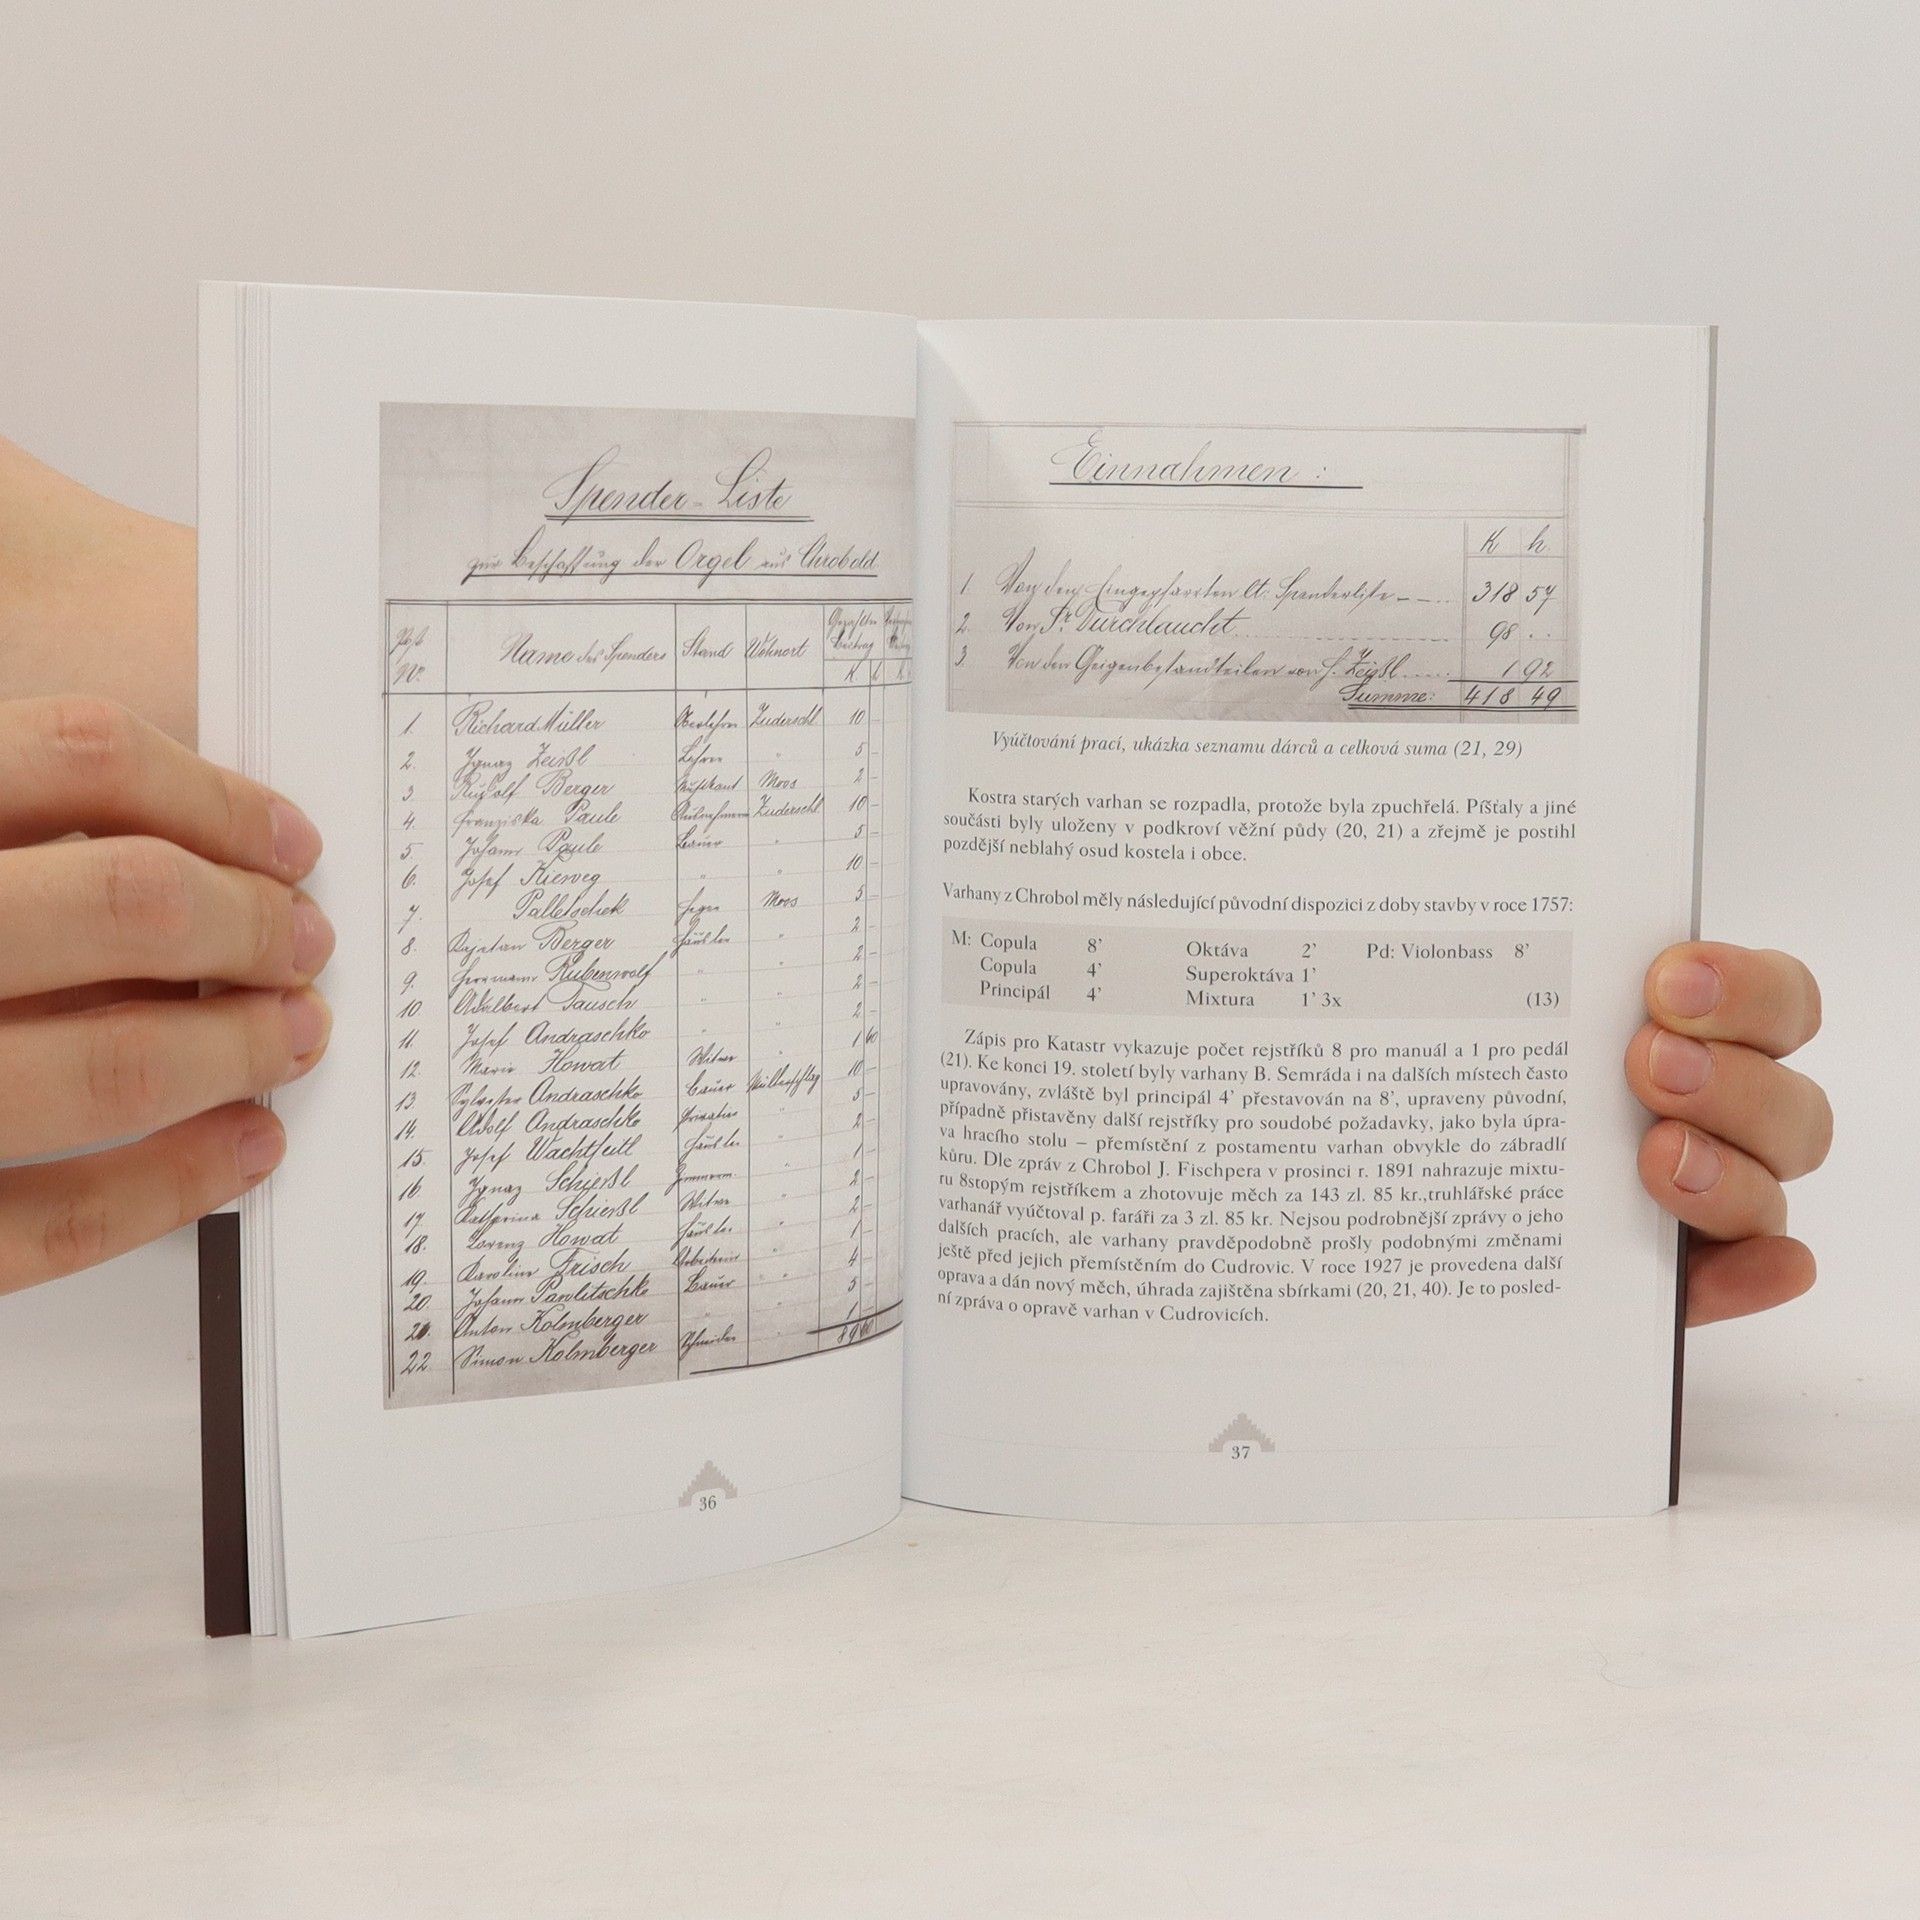 Spender-Liste
zur Beschaffung der Orgel aus Chrobold.
Post Nr. Name des Spenders Stand Wohnort Gezahlter Beitrag
K h
1. Richard Müller Oberlehrer Zuderschl. 10 -
2. Ignaz Zeißl Lehrer " 5 -
3. Rudolf Berger Musikant Moos 2 -
4. Franziska Paule Zuderschl. 10 -
5. Johann Paule Bauer " 5 -
6. Josef Kieweg " " 10 -
7. Palletschek Heger Moos 3 -
8. Kajetan Berger Häusler " 2 -
9. Hermann Rubenwolf " " 2 -
10. Adalbert Tausch " " 2 -
11. Josef Andraschko " " 2 -
12. Marie Howat Witwe " 1 60
13. Sylvester Andraschko Bauer Müllerschlag 10 -
14. Adolf Andraschko Privatier " 5 -
15. Josef Wachtfeitl Häusler " 2 -
16. Ignaz Schießl " 1 -
17. Katharina Schießl Witwe " 2 -
18. Lorenz Howat Häusler " 2 -
19. Karoline Frisch Arbeiterin " 1 -
20. Johann Pawlitschko Bauer " " 4 -
21. Anton Kolmberger " " 5 -
22. Simon Kolmberger Schneider " 1 -
89 60
36
Einnahmen :
K h
1. Von den Eingepfarrten lt. Spenderliste - - .. 318 57
2. Von Sr. Durchlaucht 98 . .
3. Von den Geigenbestandteilen von H. Zeißl 1 92
Summe: 418 49
Vyúčtování prací, ukázka seznamu dárců a celková suma (21, 29)
Kostra starých varhan se rozpadla, protože byla zpuchřelá. Píšťaly a jiné
součásti byly uloženy v podkroví věžní půdy (20, 21) a zřejmě je postihl
pozdější neblahý osud kostela i obce.
Varhany z Chrobol měly následující původní dispozici z doby stavby v roce 1757:
M: Copula 8’ Oktáva 2’ Pd: Violonbass 8’
Copula 4’ Superoktáva 1’
Principál 4’ Mixtura 1’ 3x (13)
Zápis pro Katastr vykazuje počet rejstříků 8 pro manuál a 1 pro pedál
(21). Ke konci 19. století byly varhany B. Semráda i na dalších místech často
upravovány, zvláště byl principál 4’ přestavován na 8’, upraveny původní,
případně přistavěny další rejstříky pro soudobé požadavky, jako byla úpra-
va hracího stolu – přemístění z postamentu varhan obvykle do zábradlí
kůru. Dle zpráv z Chrobol J. Fischpera v prosinci r. 1891 nahrazuje mixtu-
ru 8stopým rejstříkem a zhotovuje měch za 143 zl. 85 kr.,truhlářské práce
varhanář vyúčtoval p. faráři za 3 zl. 85 kr. Nejsou podrobnější zprávy o jeho
dalších pracích, ale varhany pravděpodobně prošly podobnými změnami
ještě před jejich přemístěním do Cudrovic. V roce 1927 je provedena další
oprava a dán nový měch, úhrada zajištěna sbírkami (20, 21, 40). Je to posled-
ní zpráva o opravě varhan v Cudrovicích.
37